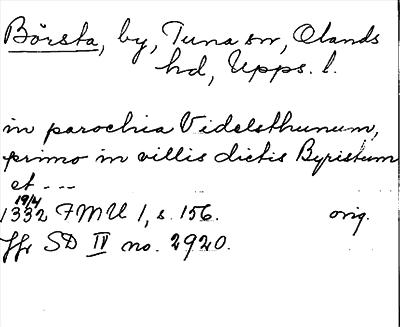 Börsta, by, Tuna sn, Olands
hd, Upps. l.
in parochia Videlsthunum,
primo in villis dictis Byristum
et ---
19/4
1332 FMU 1, s. 156. orig.
Jfr SD IV no. 2920.